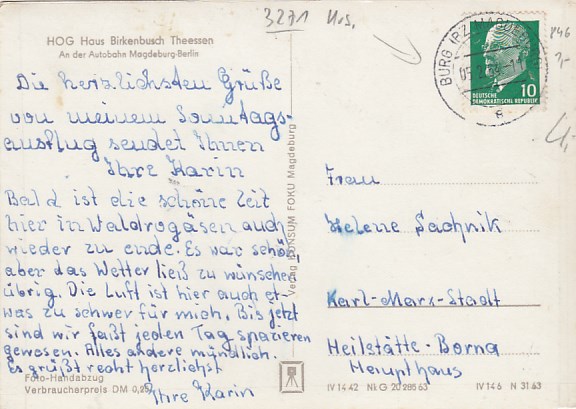 3271 Krs.
HOG Haus Birkenbusch Theessen
An der Autobahn Magdeburg-Berlin
Die herzlichsten Grüße
von meinem Sonntags-
ausflug sendet Ihnen
Ihre Karin
Bald ist die schöne Zeit
hier in Waldrogäsen auch
wieder zu ende. Es war schön,
aber das Wetter ließ zu wünschen
übrig. Die Luft ist hier auch et-
was zu schwer für mich. Bis jetzt
sind wir faßt jeden Tag spazieren
gewesen. Alles andere mündlich.
Es grüßt recht herzlichst
Ihre Karin
Foto-Handabzug
Verbraucherpreis DM 0,25
Verlag KONSUM FOKU Magdeburg
BURG (BZ. MAGDEBURG)
DEUTSCHE
DEMOKRATISCHE REPUBLIK
10
846
Frau
Helene Sachnik
Karl-Marx-Stadt
Heilstätte-Borna
Haupthaus
IV 14 42 Nk G 20 285 63
IV 14 6 N 31 63